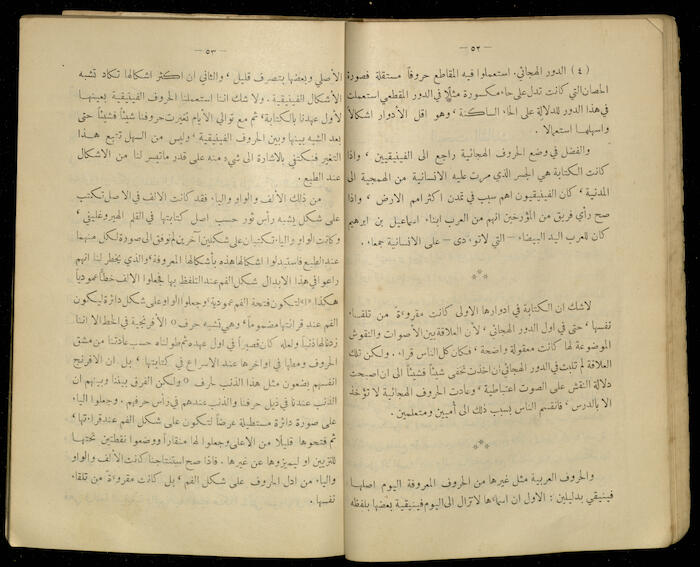 — ٥٢ —
(٤) الدور الهجائي. استعملوا فيه المقاطع حروفاً مستقلة فصورة
الحصان التي كانت تدل على حاء مكسورة مثلاً في الدور المقطعي استعملت
في هذا الدور للدلالة على الحاء الساكنة، وهو اقل الأدوار اشكالاً
واسهلها استعمالا.
والفضل في وضع الحروف الهجائية راجع الى الفينيقيين، واذا
كانت الكتابة هي الجسر الذي مرت عليه الانسانية من الهمجية الى
المدنية، كان الفينيقيون اهم سبب في تمدن اكثر امم الارض، واذا
صح رأي فريق من المؤرخين انهم من العرب ابناء اسماعيل بن ابرهيم
كان للعرب اليد البيضاء — التي لا تؤدى — على الانسانية جمعاء.
***
لاشك ان الكتابة في ادوارها الاولى كانت مقروءة من تلقاء
نفسها، حتى في اول الدور الهجائي، لأن العلاقة بين الأصوات والنقوش
الموضوعة لها كانت معقولة واضحة، فكان كل الناس قراء. ولكن تلك
العلاقة لم تلبث في الدور الهجائي ان اخذت تخفى شيئاً فشيئاً الى ان اصبحت
دلالة النقش على الصوت اعتباطية، وعادت الحروف الهجائية لا تؤخذ
الا بالدرس، فانقسم الناس بسبب ذلك الى أميين ومتعلمين.
***
والحروف العربية مثل غيرها من الحروف المعروفة اليوم اصلها
فينيقي بدليلين: الاول ان اسماءها لاتزال الى اليوم فينيقية بعضها بلفظه
— ٥٣ —
الأصلي وبعضها بتصرف قليل، والثاني ان اكثر اشكالها تكاد تشبه
الأشكال الفينيقية. ولا شك اننا استعملنا الحروف الفينيقية بعينها
لأول عهدنا بالكتابة، ثم مع توالي الأيام تغيرت حروفنا شيئاً فشيئاً حتى
بعد الشبه بينها وبين الحروف الفينيقية، وليس من السهل تتبع هذا
التغير فنكتفي بالاشارة الى شيء منه على قدر ماتيسر لنا من الاشكال
عند الطبع.
من ذلك الألف والواو والياء، فقد كانت الالف في الاصل تكتب
على شكل يشبه رأس ثور حسب اصل كتابتها في القلم الهيروغليفي،
وكانت الواو والياء تكتبان على شكلين آخرين لم نوفق الى صورة لكل منهما
عند الطبع فاستبدلوا اشكالها هذه بأشكالها المعروفة، والذي يخطر لنا انهم
راعوا في هذا الابدال شكل الفم عند التلفظ بها فجعلوا الالف خطاً عمودياً
هكذا «ا» لتكون فتحة الفم عمودية، وجعلوا الواو على شكل دائرة ليكون
الفم عند قرائتها مضموماً، وهي تشبه حرف o الأفرنجية في الخط الا اننا
زدناها ذنباً ولعله كان قصيراً في اول عهده ثم طولناه حسب عادتنا من مشق
الحروف ومطها في اواخرها عند الاسراع في كتابتها، بل ان الافرنج
انفسهم يضعون مثل هذا الذنب لحرف o ولكن الفرق بيننا وبينهم ان
الذنب عندنا في ذيل حرفنا والذنب عندهم في رأس حرفهم. وجعلوا الياء
على صورة دائرة مستطيلة عرضاً لتكون على شكل الفم عند قراءتها،
ثم فتحوها قليلاً من الاعلى وجعلوا لها منقاراً ووضعوا نقطتين تحتها
للتزيين او ليميزوها عن غيرها. فاذا صح استنتاجنا كانت الألف والواو
والياء من ادل الحروف على شكل الفم، بل كانت مقروءة من تلقاء
نفسها.